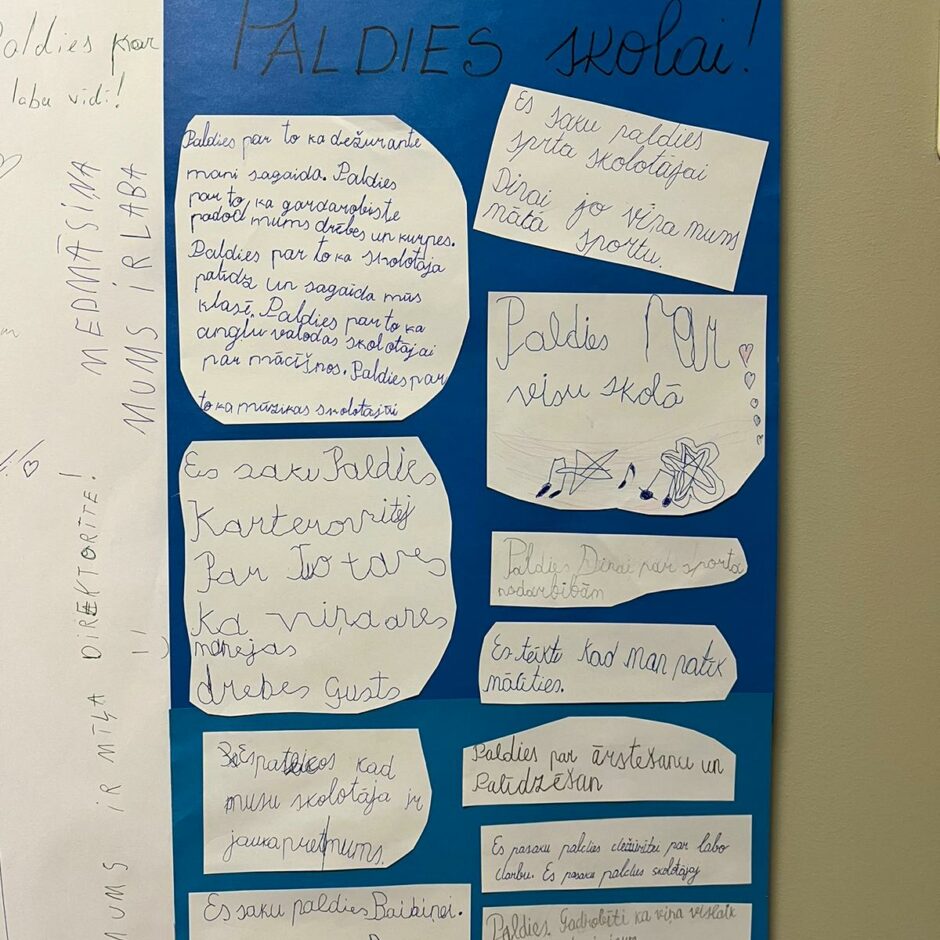 Paldies par
labu vidi!
MEDMĀSIŅA
MUMS IR LABA
MUMS IR MĪĻA DIREKTORĪTE!
PALDIES skolai!
Paldies par to ka dežurante
mani sagaida. Paldies
par to ka gardarobiste
padod mums drēbes un kurpes.
Paldies par to ka skolotāja
palīdz un sagaida mūs
klasē. Paldies par to ka
angļu valodas skolotājai
par mācīšnos. Paldies par
to ka mūzikas skolotājai
Es saku Paldies
Par To
Ka viņa
drebes Gusts
Es pateicos kad
musu skolotāja ir
jauka pret mums.
Es saku paldies Baibiņei.
Es saku paldies
sprta skolotājai
Dinai jo viņa mums
mātā sportu.
Paldies Par
visu skolā
Paldies Dinai par sporta
nodarbībām
Es teikte kad man patīk
mālīties.
Paldies par ārstešanu un
Palīdzēšan
Es pasaku paldies dežūrītu par labo
darbu. Es pasaku paldies skolotājaj
Paldies. Gadrobīti ka viņa vislaik